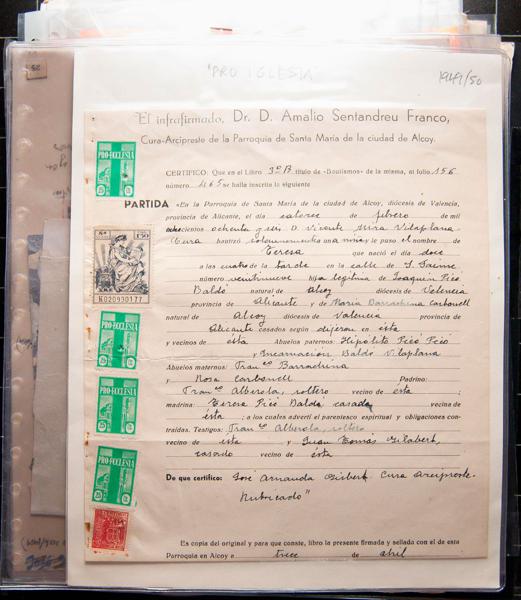 "PRO IGLESIA
1949/50
El infrafirmado, Dr. D. Amalio Sentandreu Franco,
Cura-Arcipreste de la Parroquia de Santa María de la ciudad de Alcoy.
CERTIFICO: Que en el Libro 3º B título de «Boutismos» de la misma, al folio 156
número 465 se halla inscrita lo siguiente
PARTIDA «En la Parroquia de Santa María de la ciudad de Alcoy, diócesis de Valencia,
provincia de Alicante, el día catorce de febrero de mil
ochocientos ochenta y seis D. Vicente Mira Vilaplana
Cura bautizó solemnemente una niña y le puso el nombre de
Teresa que nació el día doce
a las cuatro de la tarde en la calle de S. Jaime
número veintinueve hija legítima de Joaquín Picó
Baldó natural de Alcoy diócesis de Valencia
provincia de Alicante y de María Barrachina Carbonell
natural de Alcoy diócesis de Valencia provincia de
Alicante casados según dijeron en esta
y vecinos de esta Abuelos paternos: Hipólito Picó Picó
y Encarnación Baldó Vilaplana
Abuelos maternos: Franco Barrachina
y Rosa Carbonell Padrino:
Franco Alberola, soltero vecino de ésta ;
madrina: Teresa Picó Baldó casada vecina de
ésta ; a los cuales advertí el parentesco espiritual y obligaciones con-
traídas. Testigos: Franco Alberola, soltero
vecino de ésta y Juan Tomás Gilabert,
casado vecino de ésta
De que certifico: José Gisbert. Cura Arcipreste.
Rubricado"
Es copia del original y para que conste, libro la presente firmada y sellada con el de esta
Parroquia en Alcoy a trece de abril
PRO-ECCLESIA
25 25
1'50
N020930177
PRO-ECCLESIA
25 25
PRO-ECCLESIA
25 25
PRO-ECCLESIA
25 25